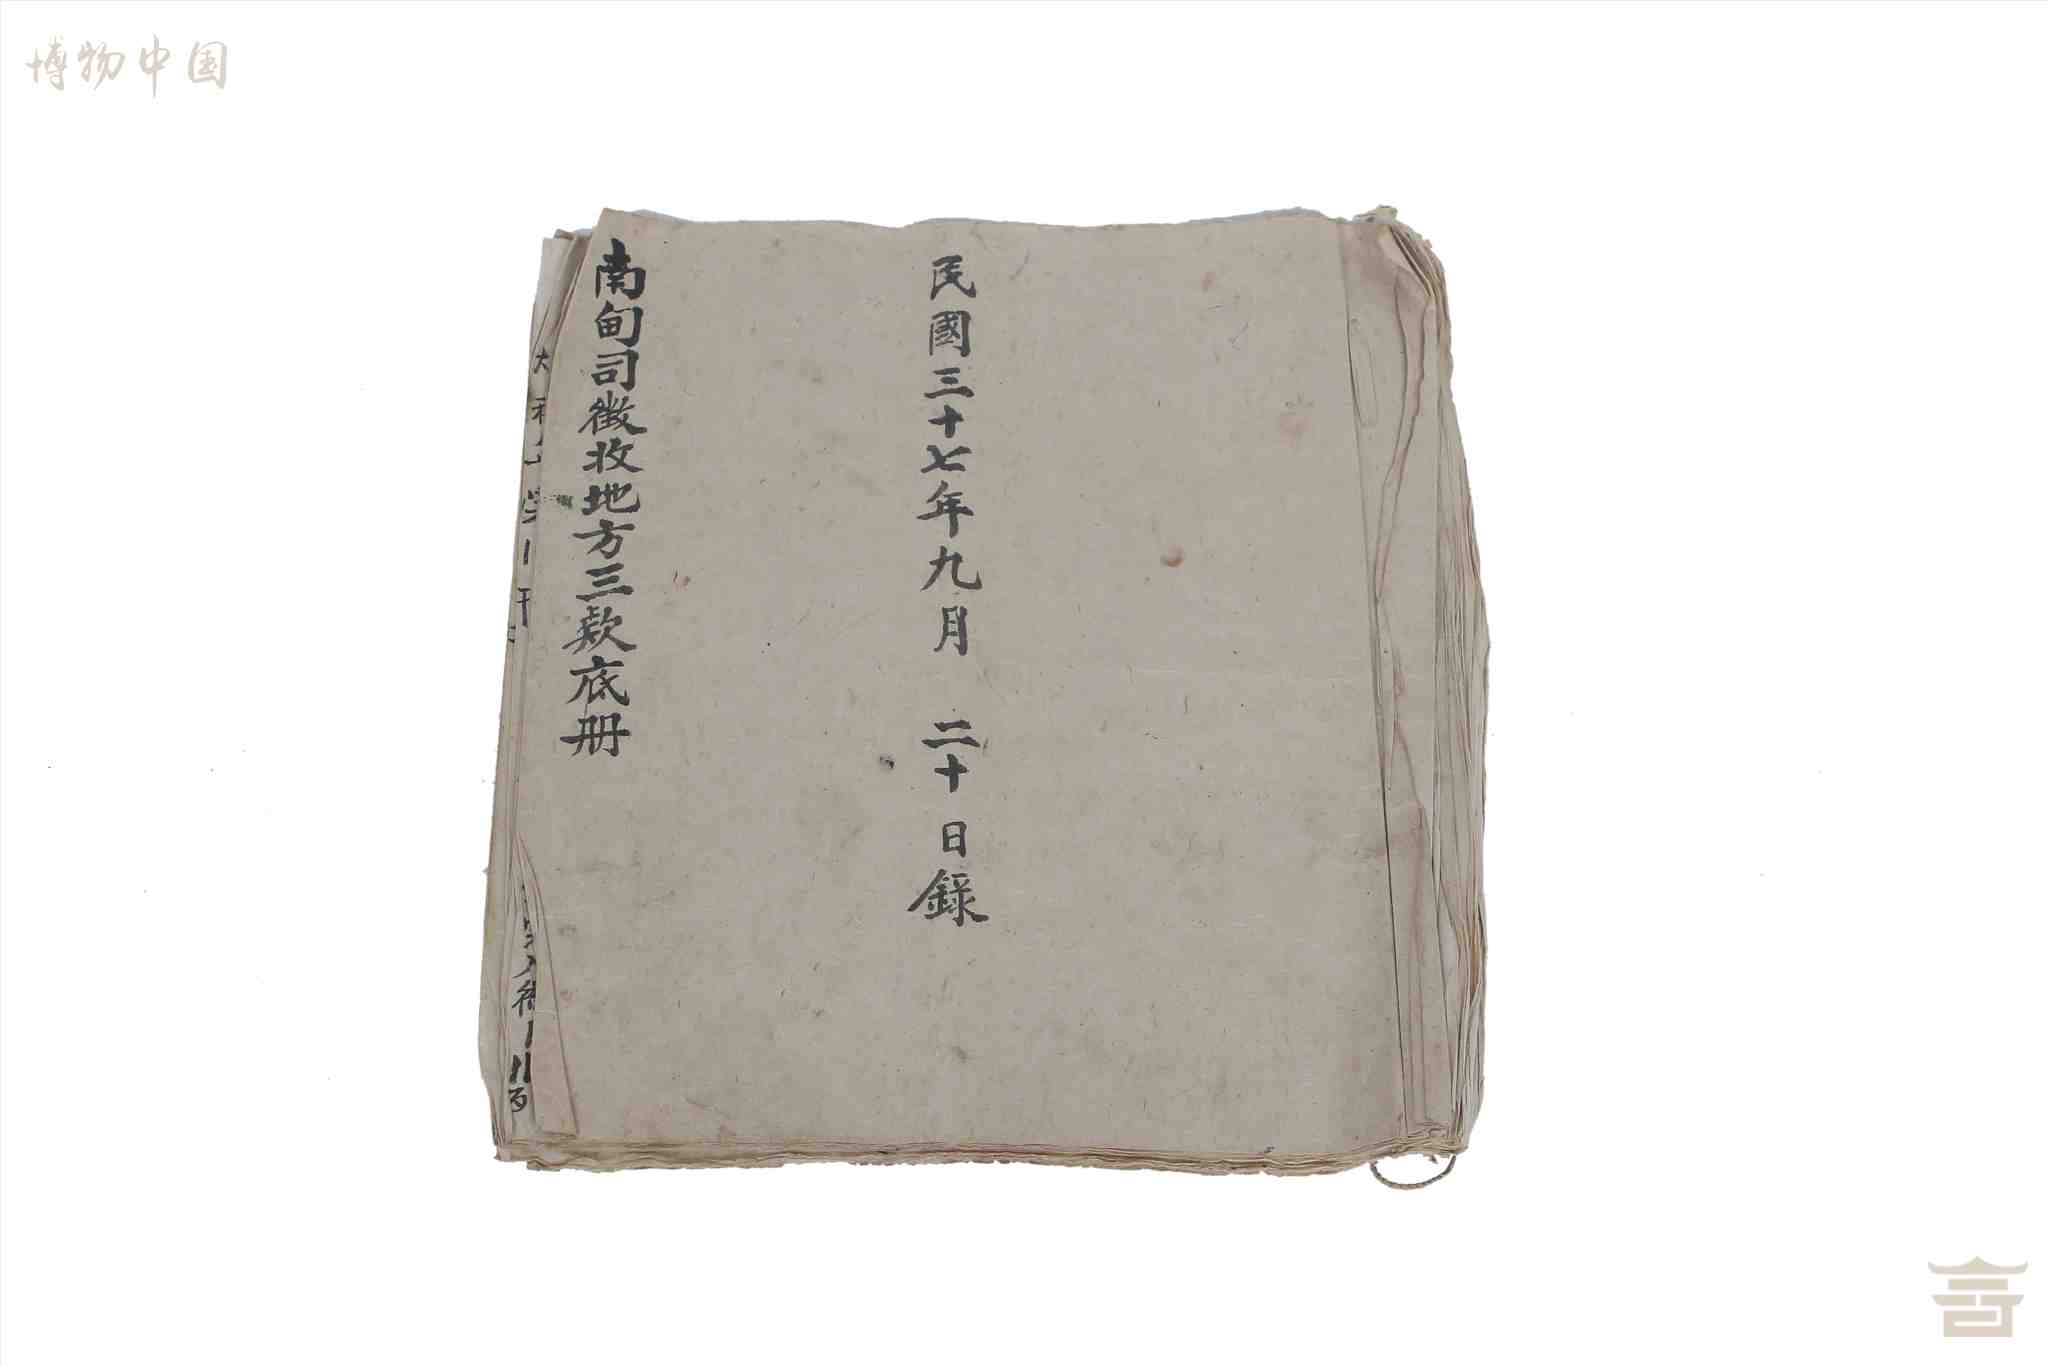 博物中国
民國三十七年九月 二十日錄
南甸司徵收地方三款底册